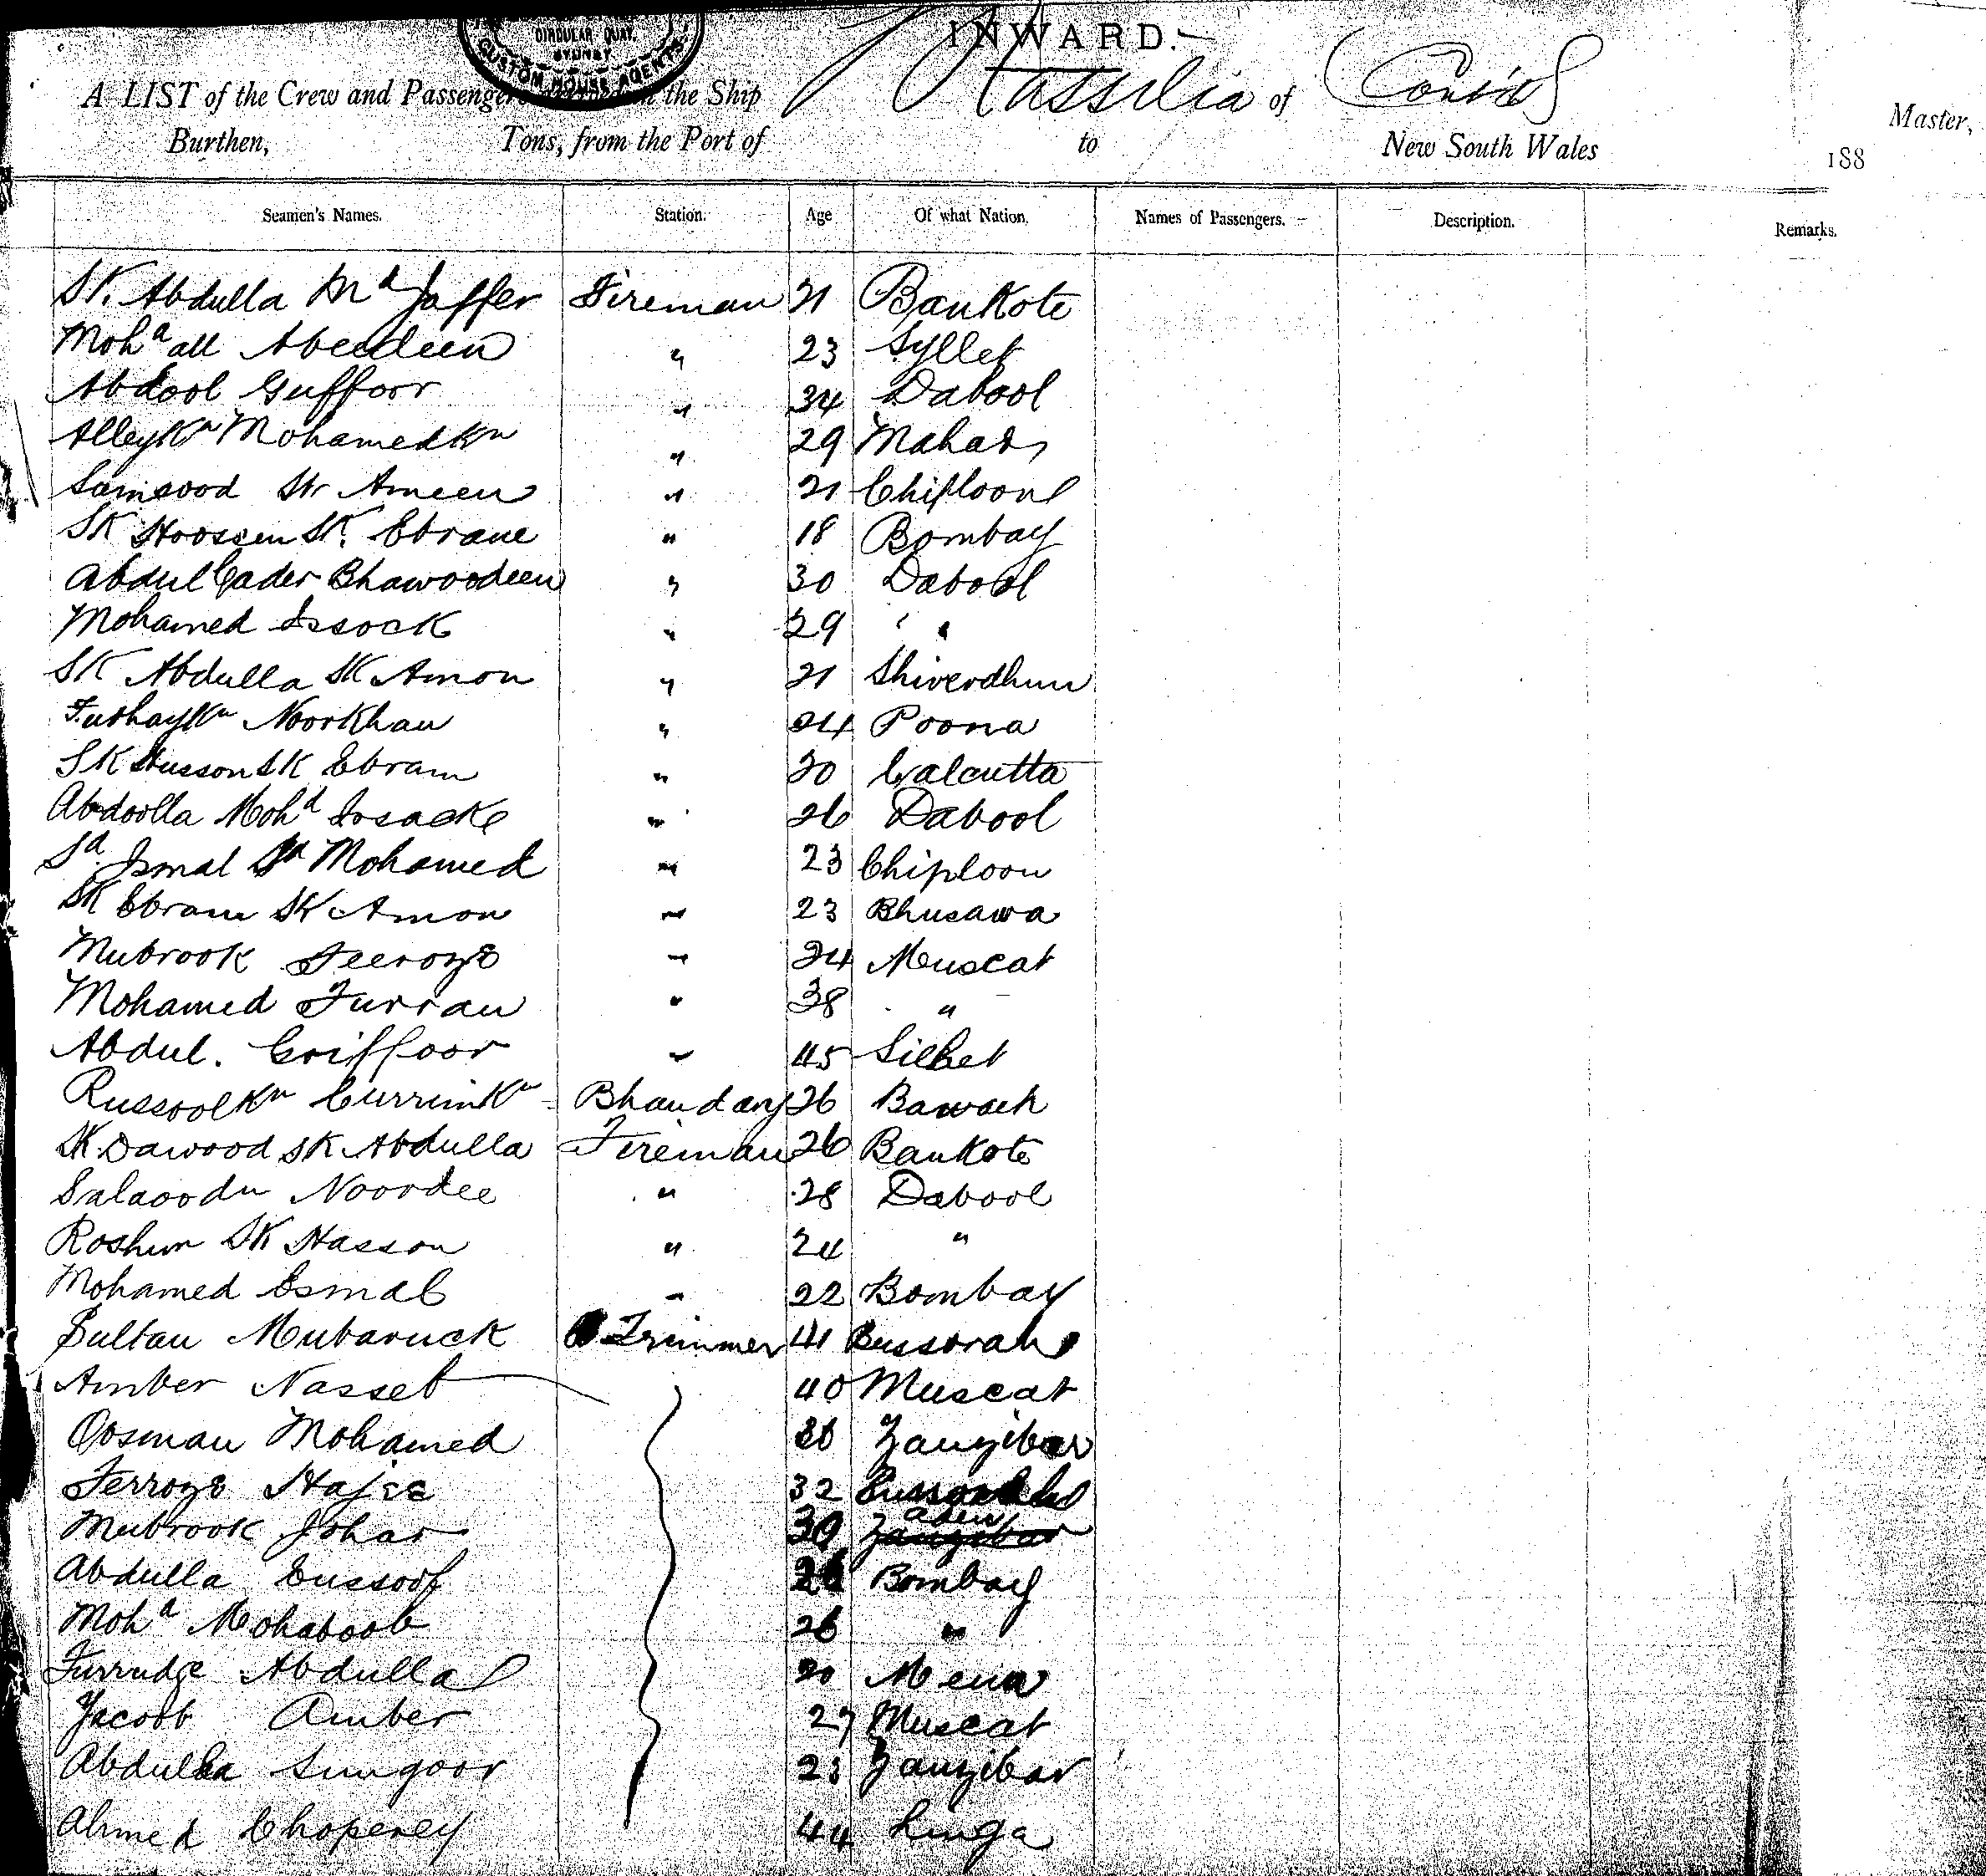 CIRCULAR QUAY,
SYDNEY
CUSTOM HOUSE AGENTS
INWARD.
A LIST of the Crew and Passengers the Ship Massilia of Master,
Burthen, Tons, from the Port of to New South Wales 188
Seamen's Names. Station. Age Of what Nation. Names of Passengers. Description. Remarks.
SK. Abdulla Md Jaffer Fireman 21 Bankote
Moha all Abeedeen " 23 Syllet
Abdool Guffoor " 34 Dabool
AlleyKn MohamedKn " 29 Mahad
Ameen " 21 Chiploon
SK Hoossen SK. Ebrane " 18 Bombay
Abdul Cader Bhawoodeen " 30 Dabool
Mohamed Issock " 29 "
SK Abdulla SK Amon " 21 Shiverdhun
Noorkhan " 24 Poona
SK Husson SK Ebram " 30 Calcutta
Abdoolla Mohd Issacke " 26 Dabool
Sd. Ismal Sd Mohamed " 23 Chiploon
SK Ebram SK Amon " 23 Bhusawa
Mubrook Feeroze " 24 Muscat
Mohamed Furran " 38 "
Abdul. Griffoor " 45 Silhet
RussoolKn CurrimKn Bhandary 26
SK. Dawood SK Abdulla Fireman 26 Bankote
Salaoodn Noordee " 28 Dabool
Roshun SK Hasson " 24 "
Mohamed Esmal " 22 Bombay
Sultan Mubaruck Trimmer 41 Bussorah
Amber Nasseb 40 Muscat
Oosman Mohamed Zanzibar
Ferroze Hajee 32
Mubrook Johar 30 Aden Zanzibar
Abdulla Eussoof Bombay
Moha Mohaboob 26 "
Furrudge Abdulla 20
Jacoob Amber 27 Muscat
Abdulla Sungoor 23 Zanzibar
Ahmed Choperey 44 Linga